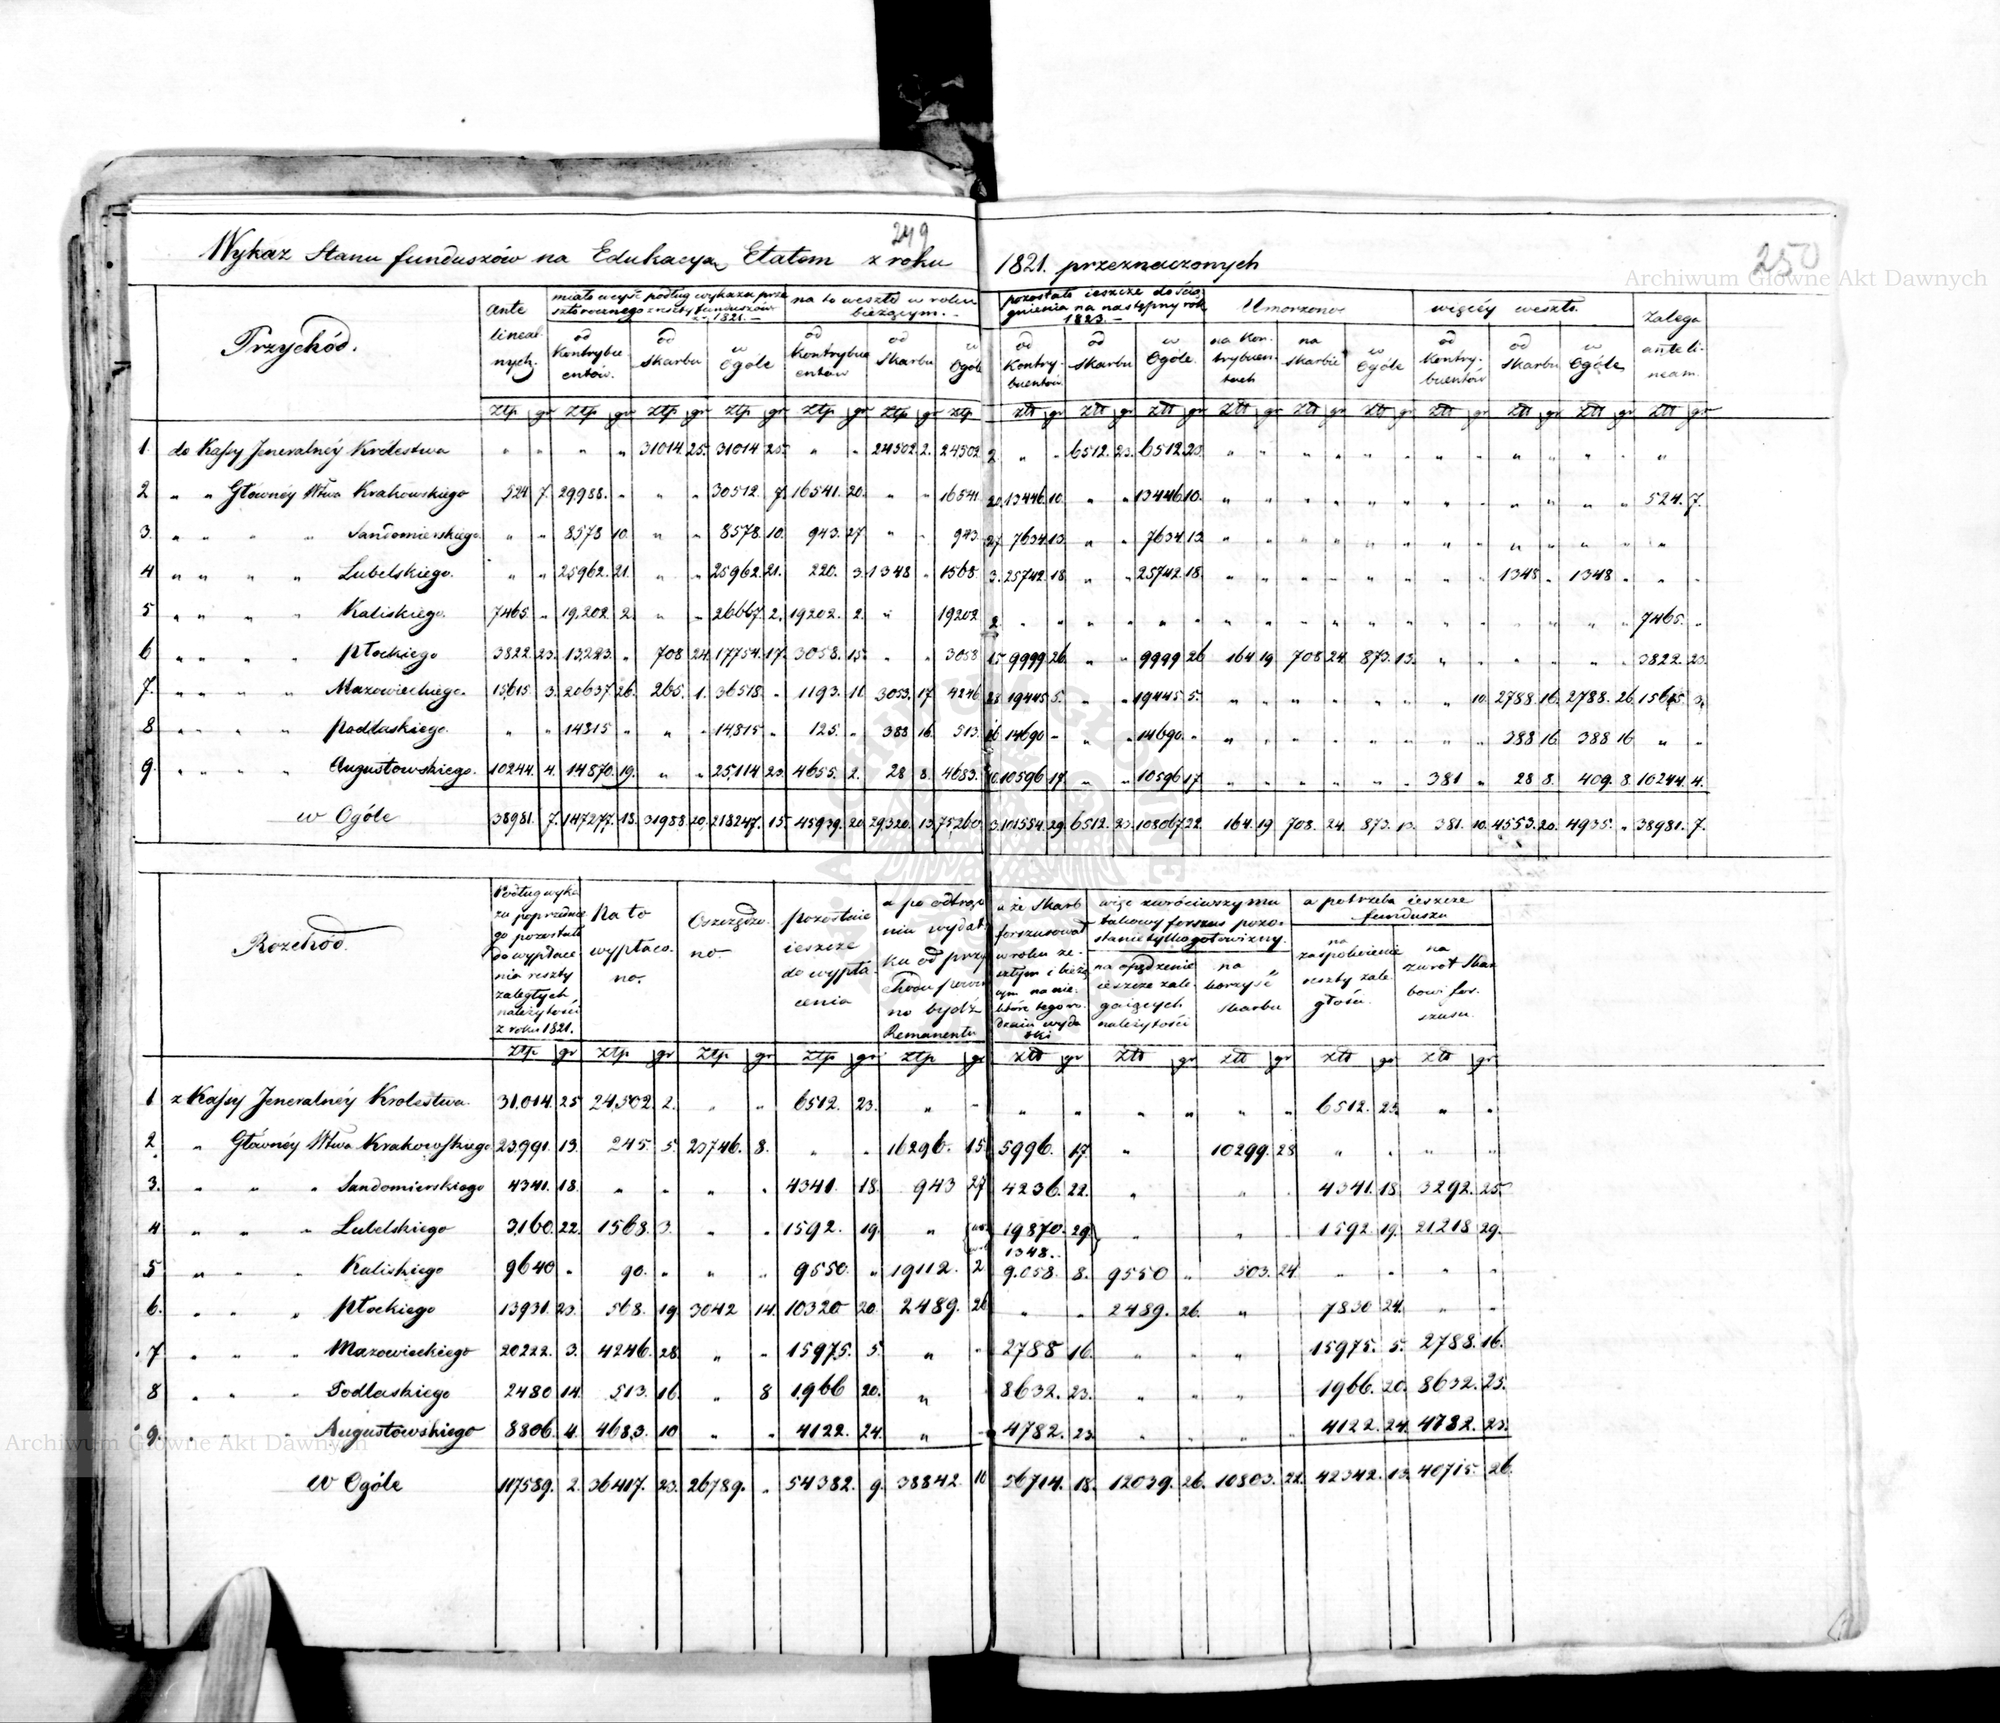 249
250
Archiwum Główne Akt Dawnych
Wykaz Stanu funduszów na Edukacyą Etatem z roku 1821. przeznaczonych
Przychód.
Ante lineal-nych.
miało weyść podług wykazu prze-szłorocznego z reszty funduszów z r. 1821.
na to weszło w roku bieżącym.
pozostało ieszcze do ścią-gnienia na następny rok 1823.
Umorzono
więcéy weszło.
Zalega ante li-neam.
od Kontrybu entów. od Skarbu w Ogóle od Kontrybu entów od Skarbu w Ogóle od Kontry-buentów. od Skarbu w Ogóle. na Kon-trybuen-tach na Skarbie w Ogóle od Kontry-buentów od Skarbu w Ogóle
Ztp gr Ztp gr Ztp gr Ztp gr Ztp gr Ztp gr Ztp Złt gr Złt gr Złt gr Złt gr Złt gr Złt gr Złt gr Złt gr Złt gr Złt gr
1. do Kassy Jeneralnéy Królestwa " " " " 31014. 25. 31014 25. " " 24502. 2. 24502 2. " " 6512. 23. 6512. 23. " " " " " " " " " " " " "
2 " " Głównéy Wtwa Krakowskiego 524. 7. 29,988. " " " 30512. 7. 16541. 20. " " 16541. 20. 13446. 10. " " 13446. 10. " " " " " " " " " " " " 524. 7.
3. " " " " Sandomierskiego. " " 8578 10. " " 8578. 10. 943. 27 " " 943. 27 7634. 13. " " 7634. 13 " " " " " " " " " " " " " "
4 " " " " Lubelskiego. " " 25962. 21. " " 25962. 21. 220. 3. 1348 " 1568. 3. 25742. 18. " " 25742. 18. " " " " " " " " 1348 " 1348 " " "
5 " " " " Kaliskiego. 7465. " 19,202. 2. " " 26667. 2. 19202. 2. " 19202 2. " " " " " " " " " " " " " " " " " " 7465. "
6 " " " " Płockiego 3822. 23. 13223. " 708 24. 17754. 17. 3058. 15. " " 3058 15 9999 26. " " 9999 26 164 19 708 24. 873. 13. " " " " " " 3822. 23.
7. " " " " Mazowieckiego. 15615 3. 20637. 26. 265. 1. 36518. " 1193. 11. 3053. 17. 4246 28 19445 5. " " 19445 5. " " " " " " " 10. 2788 16. 2788. 26. 15615. 3.
8 " " " " Podlaskiego. " " 14815 " " " 14815 " 125. " 388 16. 513. 16 14690 " " " 14690. " " " " " " " " " 388 16. 388 16 " "
9. " " " " Augustowskiego. 10244. 4. 14870. 19. " " 25,114 23. 4655. 2. 28 8. 4683. 10. 10596 17. " " 10596 17. " " " " " " 381 " 28 8. 409. 8. 10244. 4.
w Ogóle 38981. 7. 147277. 18. 31988 20. 218247. 15. 45939. 20. 29320. 13. 75260. 3. 101554. 29. 6512. 23. 108067. 22. 164. 19 708. 24. 873. 13. 381. 10. 4553. 20. 4935. " 38981. 7.
Rozchód.
Podług wyka zu poprzednie go pozostało do wypłace nia reszty zaległych należytości z roku 1821.
Na to wypłaco. no.
Oszczędzo. no.
pozostaie ieszcze do wypła cenia
a po odtrąc niu wydat ku od przy chodu powin no bydź Remanentu
a że Skarb forszusował w roku ze. szłym i bieżą cym na nie. które tego ro. dzaiu wyda tki
więc zwróciwszy mu takowy forszus pozo-stanie tylko gotowizny.
na opędzenie ieszcze zale-gaiących należytości
na korzyść Skarbu
a potrzeba ieszcze funduszu
na zaspokoienie reszty zale głości.
na zwrot Skar bowi for. szusu.
Ztp gr Ztp gr Ztp gr Ztp gr Ztp gr Złt gr Złt gr Złt gr Złt gr Złt gr
1 z Kassy Jeneralnéy Krolestwa. 31,014. 25 24,502. 2. " " 6512. 23. " " " " " " " " 6512. 23. " "
2. " Głównéy Wtwa Krakowskiego 23,991. 13. 245. 5. 23746. 8. " " 16296. 15. 5996. 17. " 10299. 28 " " " "
3. " " " Sandomierskiego 4341. 18. " " " " 4341. 18. 943 27 4236. 22. " " " 4341. 18. 3292. 25.
4 " " " Lubelskiego 3,160. 22. 1568. 3. " " 1592. 19. " 19870. 29. " " 1592. 19. 21218 29.
1348.
5 " " " Kaliskiego 9640 " 90. " " " 9550. " 19112. 2 9,058. 8. 9550 " 503. 24. " " " "
6. " " " Płockiego 13931. 23. 568. 19 3042 14. 10320 20. 2489. 26 " " 2489. 26. " 7830 24. " "
7 " " " Mazowieckiego 20222. 3. 4246. 28. " " 15975. 5. " " 2788 16. " " " 15975. 5. 2788. 16.
8 " " " Podlaskiego 2480 14. 513. 16. " 8 1,966 20. " 8632. 23. " " " 1966. 20. 8632. 23.
9. " " " Augustowskiego 8806. 4. 4683. 10 " " 4122. 24. " " 4782. 23. " " " 4122. 24. 4782. 23.
w Ogóle 117589. 2. 36417. 23. 26789. " 54382. 9. 38842. 10 56714. 18. 12039. 26. 10803. 22. 42342. 13. 40715. 26.
Archiwum Główne Akt Dawnych